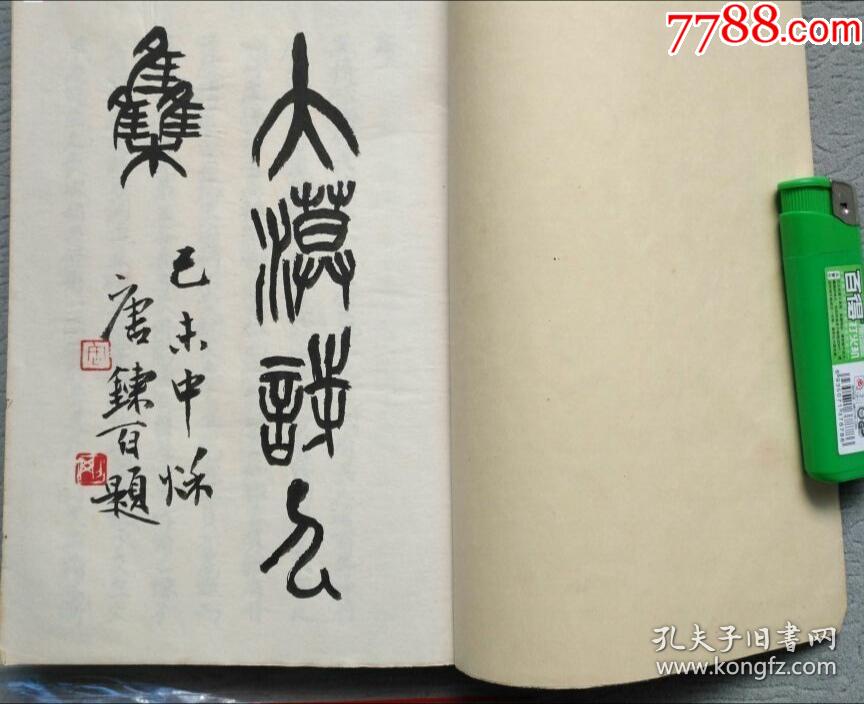 7788.com
大漠詩
集
己未中秌
唐鍊百題
百得
孔夫子旧書网
www.kongfz.com